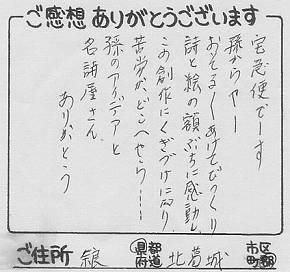 ご感想ありがとうございます
宅急便でーす
孫からやー
おそるゝあけてびっくり
詩と絵の額ぶちに感動し
この創作にくぎづけになり
苦労が、どこへやら……
孫のアイデアと
名詩屋さん
ありがとう
ご住所 県都府道 北葛城 市区町郡